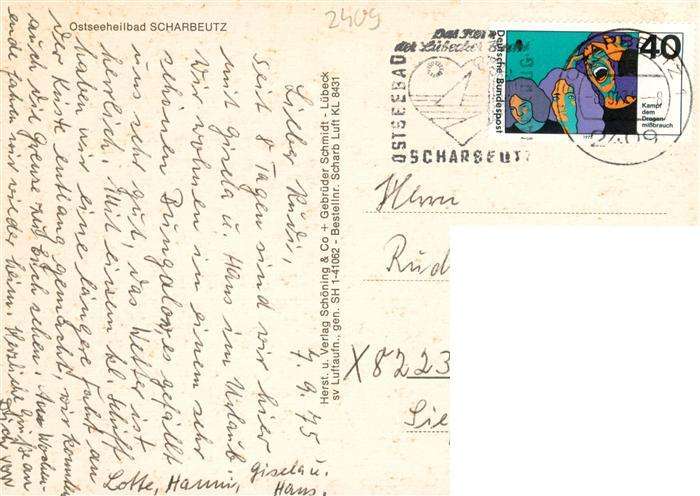 Ostseeheilbad SCHARBEUTZ
2409
Das Herz
der Lübecker Bucht
OSTSEEBAD
SCHARBEUTZ
2409
40
Deutsche Bundespost
Kampf
dem
Drogen
mißbrauch
Herst. u. Verlag Schöning & Co + Gebrüder Schmidt - Lübeck
sv Luftaufn., gen. SH 1-41062 - Bestellnr. Scharb Luft KL 8431
7.9.75
Lieber Rudi,
seit 8 Tagen sind wir hier
mit Gisela u. Hans im Urlaub.
Wir wohnen in einem sehr
schönen Bungalow, es gefällt
uns sehr gut, das Wetter ist
herrlich. Mit einem kl. Schiff
haben wir eine längere Fahrt an
der Küste entlang gemacht, wir konnten
auch die Grenze zu Euch sehen. Am Wochen-
ende fahren wir wieder heim. Herzliche Grüße an
Dich von
Lotte, Hanni, Gisela u.
Hans.
Herrn
Rud
X8223
Sie